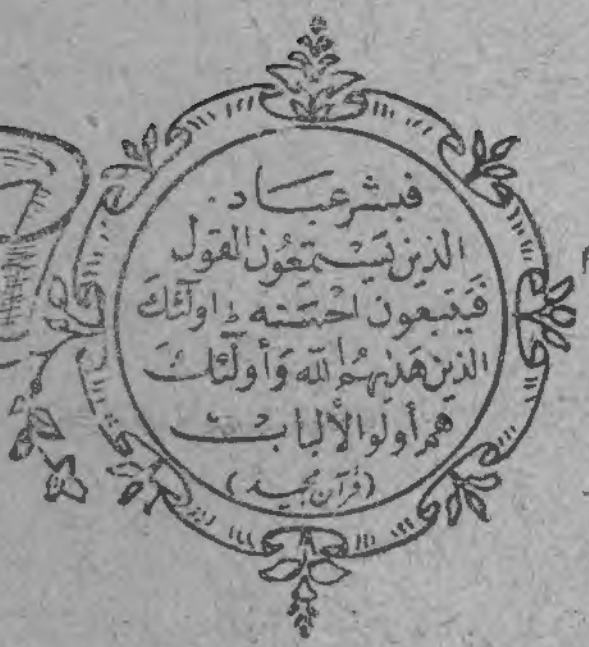 فبشر عباد
الذين يَسْتَمِعُون القول
فَيَتبعون احْسَنه ط اولٰئكَ
الذين هَدٰيهُم اللّه وَأولٰئكَ
هم أولوا الألباب
(قرآن مجيد)